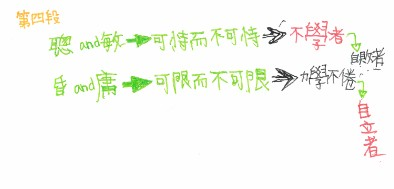 第四段
聰and敏→可恃而不可恃→不學者
自敗者
昏and庸→可限而不可限→力學不倦
自立者